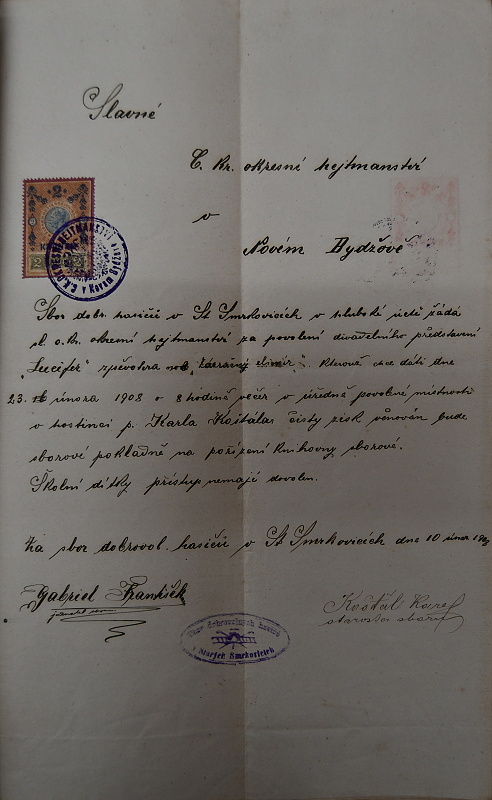 Slavné
C. kr. okresné hejtmanství
v
Novém Bydžově
2
2 2
C.K. OKRESNÍ HEJTMANSTVÍ v Novém Bydžově
Sbor dobr. hasičů v St. Smrkovicích v hluboké úctě žádá
sl. c. k. okresní hejtmanství za povolení divadelního představení
"Lucifer" zpěvohra neb "zázrašný elixír". Kterouž chce dáti dne
23. února 1908 o 8 hodině večer v úředně povolené místnosti
v hostinci p. Karla Košťála čistý zisk věnován bude
sborové pokladně na pořízení knihovny sborové.
Školní dítky přístup nemají dovolen.
Za sbor dobrovol. hasičů v St. Smrkovicích dne 10 února
Gabriel František
jednatel
Košťál Karel
starosta sboru
Sbor dobrovolných hasičů
v Starých Smrkovicích